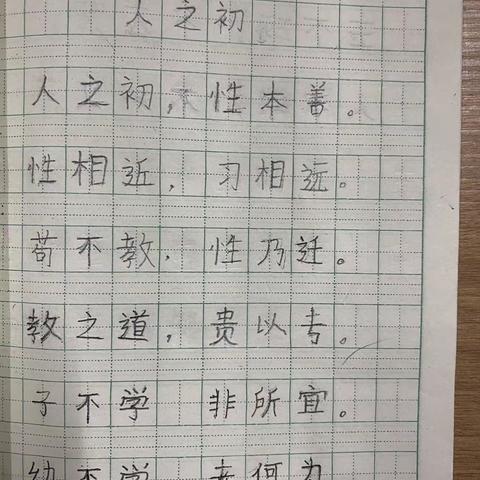 人之初
人之初，性本善。
性相近，习相远。
苟不教，性乃迁。
教之道，贵以专。
子不学 非所宜。
幼不学 老何为